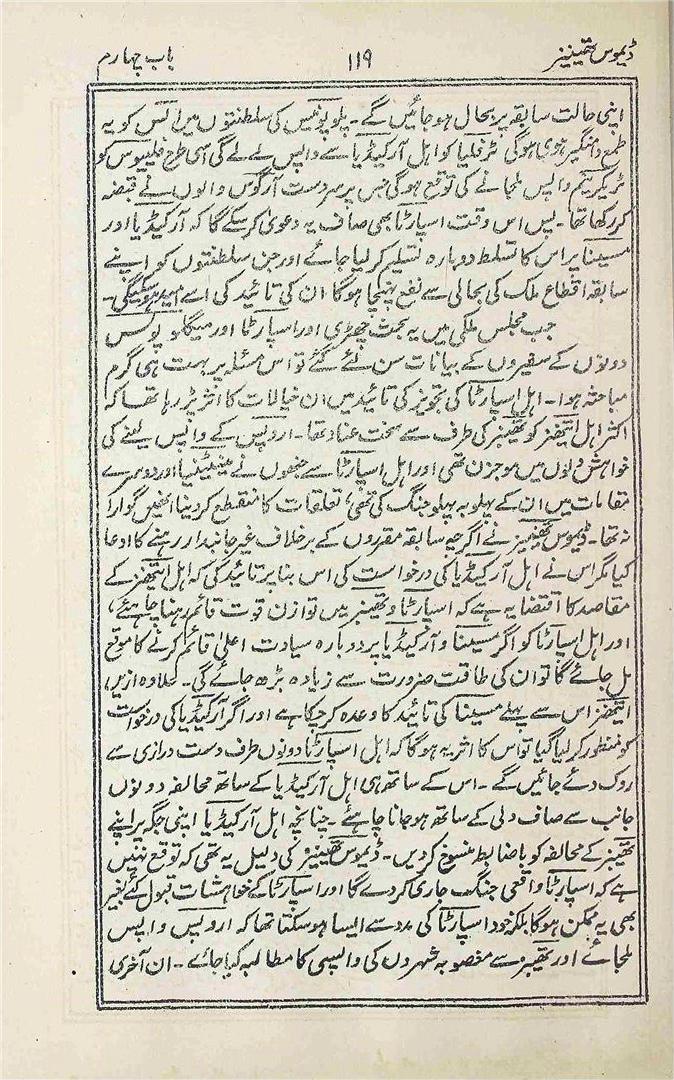 ڈیموس تھینیز ۱۱۹ باب چہارم
اپنی حالت سابقہ پر بحال ہوجائیں گے۔ پلوپونیس کی سلطنتوں میں ایلس کو یہ
طمع دامنگیر ہوی ہوگی ٹرفلیا کو اہل آرکیڈیا سے واپس لے لے گی اسی طرح فلیوس کو
ٹریکرینم واپس ملجانے کی توقع ہوگی جس پر سردست آرگوس والوں نے قبضہ
کر رکھا تھا۔ پس اس وقت اسپارٹا بھی صاف یہ دعویٰ کرسکے گا کہ آرکیڈیا اور
مسینا پر اس کا تسلط دوبارہ تسلیم کرلیا جائے اور جن سلطنتوں کو اپنے
سابقہ اقطاع ملک کی بحالی سے نفع پہنچا ہوگا ان کی تائید کی اسے امید ہوسکیگی۔
جب مجلس ملکی میں یہ بحث چھڑی اور اسپارٹا اور میگالوپولس
دونوں کے سفیروں کے بیانات سن لئے گئے تو اس مسئلہ پر بہت ہی گرم
مباحثہ ہوا۔ اہل اسپارٹا کی تجویز کی تائید میں ان خیالات کا اثر پڑ رہا تھا کہ
اکثر اہل ایتھنز کو تھیبز کی طرف سے سخت عناد تھا۔ اروپس کے واپس لینے کی
خواہش دلوں میں موجزن تھی اور اہل اسپارٹا سے جنھوں نے مینٹینیا اور دوسرے
مقامات میں ان کے پہلو بہ پہلو جنگ کی تھی، تعلقات کا منقطع کردینا انھیں گوارا
نہ تھا۔ ڈیموس تھینیز نے اگرچہ سابقہ مقرروں کے برخلاف غیر جانبدار رہنے کا ادعا
کیا مگر اس نے اہل آرکیڈیا کی درخواست کی اس بنا پر تائید کی کہ اہل ایتھنز کے
مقاصد کا اقتضا یہ ہے کہ اسپارٹا و تھیبز میں توازن قوت قائم رہنا چاہئے،
اور اہل اسپارٹا کو اگر مسینا و آرکیڈیا پر دوبارہ سیادت اعلیٰ قائم کرنے کا موقع
مل جائے گا تو ان کی طاقت ضرورت سے زیادہ بڑھ جائے گی۔ علاوہ ازیں،
ایتھنز اس سے پہلے مسینا کی تائید کا وعدہ کرچکا ہے اور اگر آرکیڈیا کی درخواست
کو منظور کرلیا گیا تو اس کا اثر یہ ہوگا کہ اہل اسپارٹا دونوں طرف دست درازی سے
روک دئے جائیں گے۔ اس کے ساتھ ہی اہل آرکیڈیا کے ساتھ محالفہ دونوں
جانب سے صاف دلی کے ساتھ ہوجانا چاہئے۔ چنانچہ اہل آرکیڈیا اپنی جگہ پر اپنے
تھیبز کے محالفہ کو باضابطہ منسوخ کردیں۔ ڈیموس تھینیز کی دلیل یہ تھی کہ توقع نہیں
ہے کہ اسپارٹا واقعی جنگ جاری کردے گا اور اسپارٹا کے خواہشات قبول کئے بغیر
بھی یہ ممکن ہوگا بلکہ خود اسپارٹا کی مدد سے ایسا ہوسکتا تھا کہ اروپس واپس
ملجائے اور تھیبز سے مغصوبہ شہروں کی واپسی کا مطالبہ کیا جائے۔ ان آخری